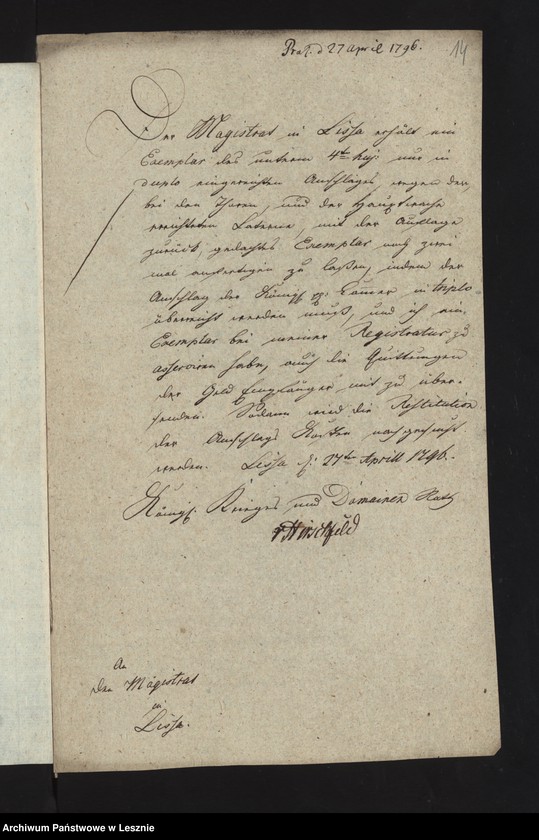 Prs. d 27 April 1796.
14
Der Magistrat in Lissa erhält ein
Exemplar des unterm 4ten huj. nur in
duplo eingereichten Anschlages, wegen der,
bei den Thoren, und der Hauptwache
errichteten Laterne, mit der Auflage
zurück, gedachtes Exemplar noch zwei
mal anfertigen zu laßen, indem der
Anschlag der Königl. pp. Camer in triplo
überreicht werden muß, und ich ein
Exemplar bei meiner Registratur zu
asserviren habe, auch die Quittungen
der Geld Empfänger mit zu über-
senden. Sodann wird die Restitution
der Anschlags Kosten nachgesucht
werden. Lissa d. 27ten Aprill 1796.
Königl. Krieges und Domainen Rath
v Hirschfeld
An
den Magistrat
in
Lissa.
Archiwum Państwowe w Lesznie